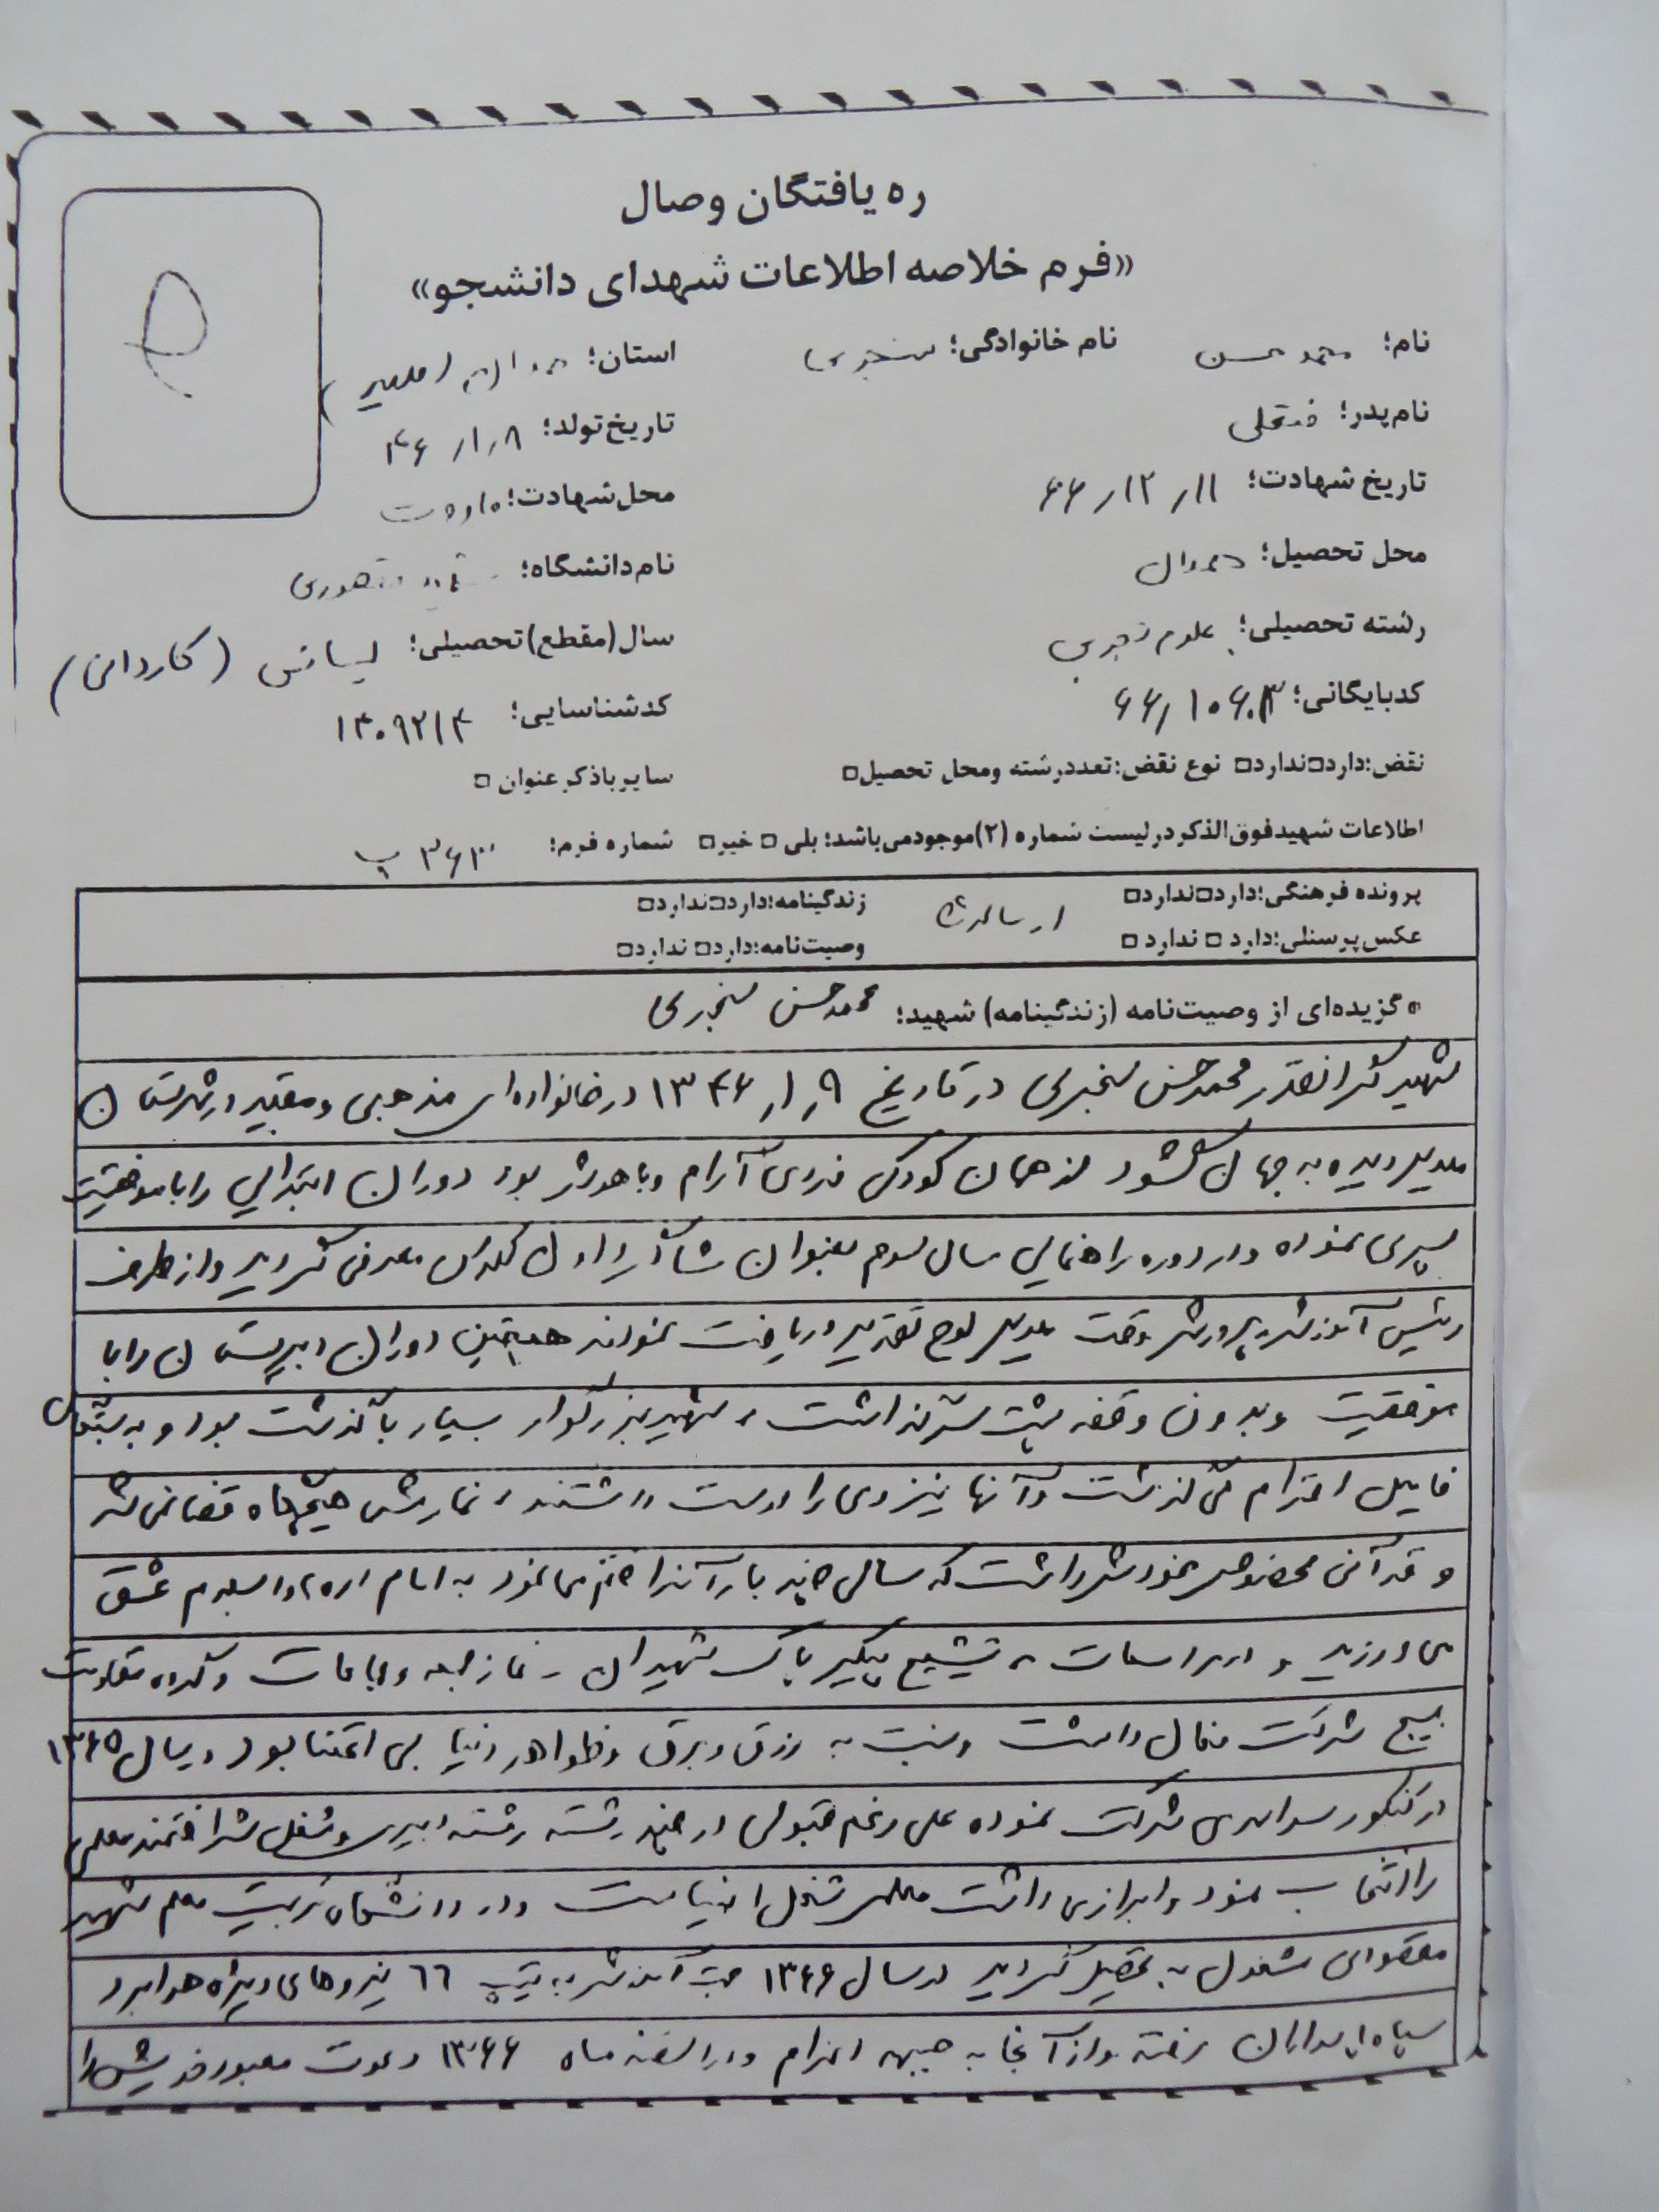 ره یافتگان وصال
«فرم خلاصه اطلاعات شهدای دانشجو»
نام؛ محمد حسن نام خانوادگی؛ سنجری استان؛ همدان (ملایر)
نام پدر؛ فتحعلی تاریخ تولد؛ ۸ر۱ر۴۶
تاریخ شهادت؛ ۱۱ر۱۲ر۶۶ محل شهادت؛ ماووت
محل تحصیل؛ همدان نام دانشگاه؛ شهید مقصودی
رشته تحصیلی؛ علوم تجربی سال(مقطع)تحصیلی؛ لیسانس (کاردانی)
کدبایگانی؛ کدشناسایی؛ ۱۳۰۹۲۱۴
نقض؛دارد□ندارد□ نوع نقض؛تعددرشته ومحل تحصیل□ سایرباذکرعنوان □
اطلاعات شهیدفوق‌الذکردرلیست شماره (۲)موجودمی‌باشد؛ بلی □ خیر□ شماره فرم؛
پرونده فرهنگی؛دارد□ندارد□ ارسال شد زندگینامه؛دارد□ندارد□
عکس‌پرسنلی؛دارد □ ندارد □ وصیت‌نامه؛دارد□ ندارد□
• گزیده‌ای از وصیت‌نامه (زندگینامه) شهید؛ محمدحسن سنجری
شهید گرانقدر محمدحسن سنجری در تاریخ ۹ر۱ر۱۳۴۶ در خانواده‌ای مذهبی و مقید در شهرستان
ملایر دیده به جهان گشود از همان کودکی فردی آرام و باهوش بود دوران ابتدایی را با موفقیت
سپری نموده و در دوره راهنمایی سال سوم بعنوان شاگرد اول کلاس معرفی گردید و از طرف
رئیس آموزش و پرورش وقت ملایر لوح تقدیر دریافت نمودند همچنین دوران دبیرستان را با
موفقیت و بدون وقفه پشت سر گذاشت، شهید بزرگوار بسیار با گذشت بود و به
فامیل احترام می گذاشت و آنها نیز وی را دوست داشتند، نمازش هیچگاه قضا نمی شد
و قرآنی مخصوص بخودش داشت که سالی چند بار آنرا ختم می نمود به امام (ره) و اسلام عشق
می ورزید و در مراسمات تشییع پیکر پاک شهیدان - نماز جمعه و جماعات و گروه مقاومت
بسیج شرکت فعال داشت و نسبت به زرق و برق و ظواهر دنیا بی اعتنا بود در سال ۱۳۶۵
در کنکور سراسری شرکت نموده علی رغم قبولی در چند رشته رشته دبیری و شغل شرافتمند معلمی
را انتخاب نمود و ابراز می داشت معلمی شغل انبیاست و در دانشگاه تربیت معلم شهید
مقصودی مشغول به تحصیل گردید در سال ۱۳۶۶ جهت آموزش به تیپ ۶۶ نیروهای ویژه هوابرد
سپاه پاسداران رفته و از آنجا به جبهه اعزام و در اسفند ماه ۱۳۶۶ دعوت معبود خویش را